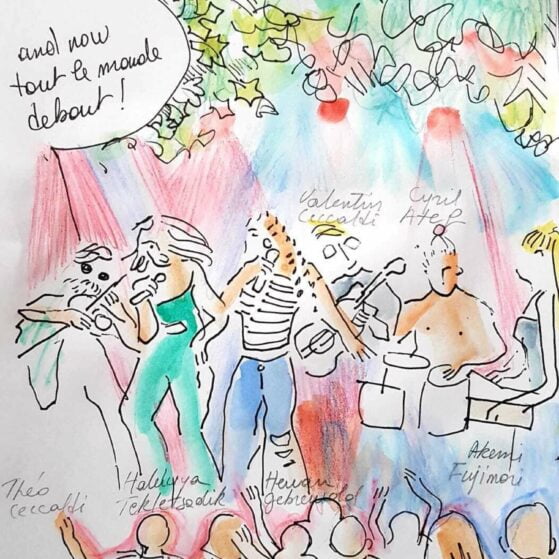 and now
tout le monde
debout !
Valentin
Ceccaldi
Cyril
Atef
Théo
Ceccaldi
Haleluya
Tekletsadik
Hewan
Gebrewold
Akemi
Fujimori